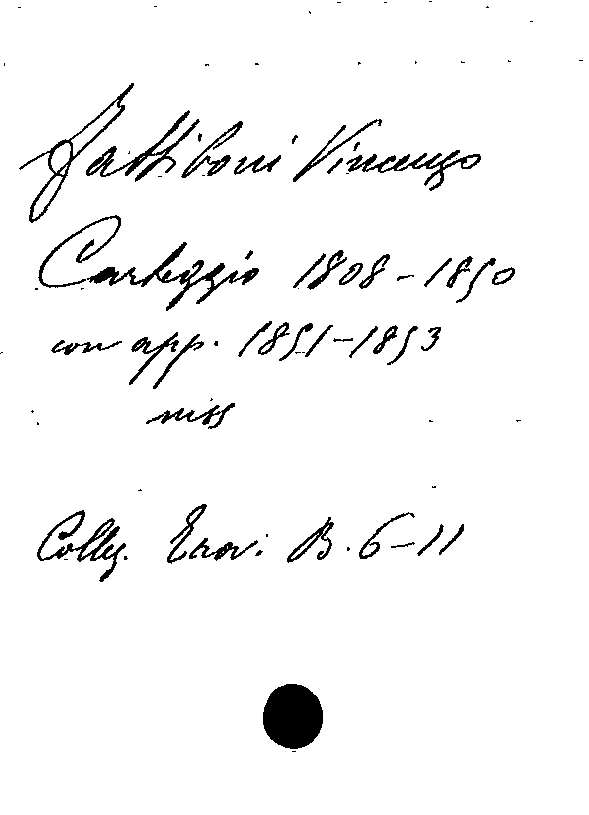 Fattiboni Vincenzo
Carteggio 1808-1850
con app. 1851-1853
mss
Collez. B. 6-11